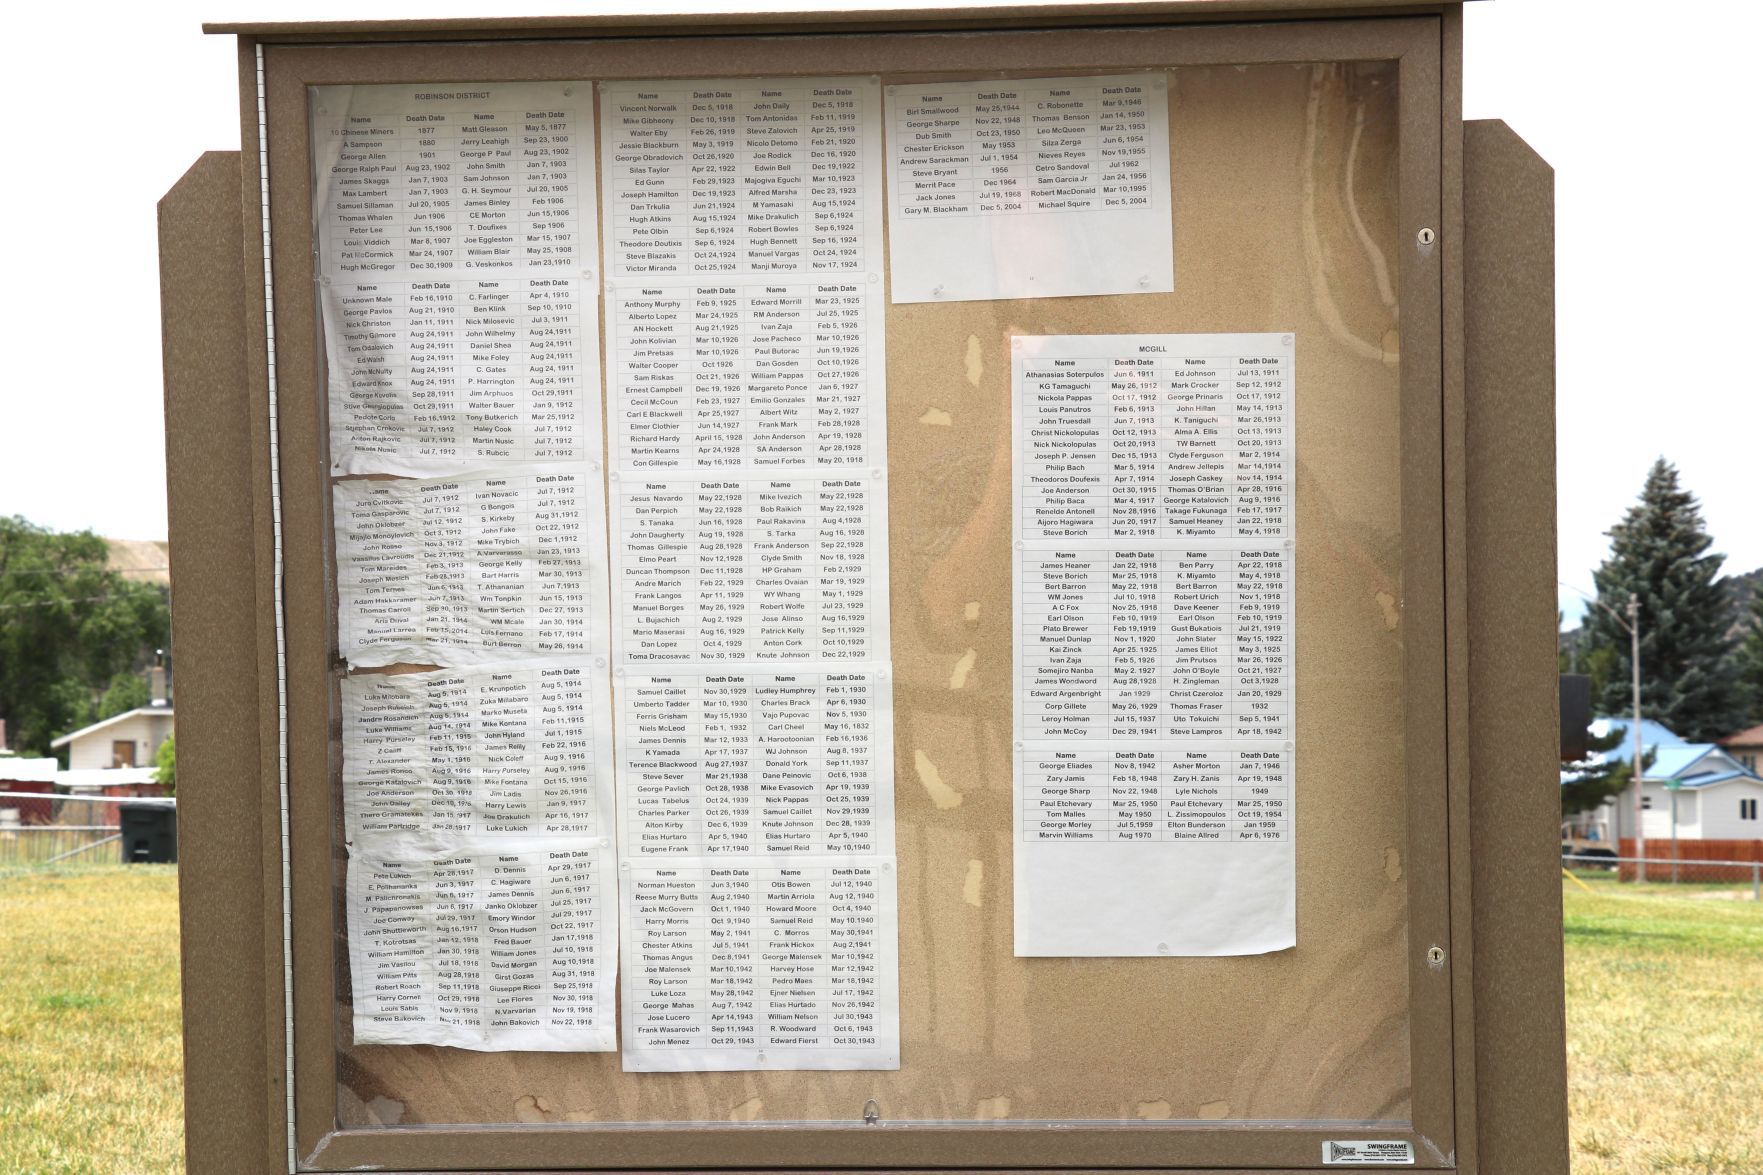 ROBINSON DISTRICT
Name Death Date Name Death Date
10 Chinese Miners 1877 Matt Gleason May 5, 1877
A Sampson 1880 Jerry Leahigh Sep 23, 1900
George Allen 1901 George P Paul Aug 23, 1902
George Ralph Paul Aug 23, 1902 John Smith Jan 7, 1903
James Skaggs Jan 7, 1903 Sam Johnson Jan 7, 1903
Max Lambert Jan 7, 1903 G. H. Seymour Jul 20, 1905
Samuel Sillaman Jul 20, 1905 James Binley Feb 1906
Thomas Whalen Jun 1906 CE Morton Jun 15,1906
Peter Lee Jun 15,1906 T. Doufixes Sep 1906
Louis Viddich Mar 8, 1907 Joe Eggleston Mar 15, 1907
Pat McCormick Mar 24, 1907 William Blair May 25, 1908
Hugh McGregor Dec 30,1909 G. Veskonkos Jan 23,1910
Name Death Date Name Death Date
Unknown Male Feb 16,1910 C. Farlinger Apr 4, 1910
George Pavlos Aug 21, 1910 Ben Klink Sep 10, 1910
Nick Christon Jan 11, 1911 Nick Milosevic Jul 3, 1911
Timothy Gilmore Aug 24,1911 John Wilhelmy Aug 24,1911
Tom Odalovich Aug 24,1911 Daniel Shea Aug 24,1911
Ed Walsh Aug 24,1911 Mike Foley Aug 24,1911
John McNulty Aug 24,1911 C. Gates Aug 24,1911
Edward Knox Aug 24, 1911 P. Harrington Aug 24,1911
George Kuvelis Sep 28,1911 Jim Arphuos Oct 29,1911
Stive Georgiopulas Oct 29,1911 Walter Bauer Jan 9, 1912
Pedote Corlo Feb 16,1912 Tony Butkerich Mar 25,1912
Stjephan Crnkovic Jul 7, 1912 Haley Cook Jul 7, 1912
Anton Rajkovic Jul 7, 1912 Martin Nusic Jul 7, 1912
Nikola Nusic Jul 7, 1912 S. Rubcic Jul 7, 1912
Name Death Date Name Death Date
Juro Cvitkovic Jul 7, 1912 Ivan Novacic Jul 7, 1912
Toma Gasparovic Jul 7, 1912 G Bongois Jul 7, 1912
John Oklobzer Jul 12, 1912 S. Kirkeby Aug 31,1912
Mijajlo Monoylovich Oct 3, 1912 John Fake Oct 22, 1912
John Rosso Nov 3, 1912 Mike Trybich Dec 1,1912
Vassilus Lavroudis Dec 21,1912 A.Varvarasso Jan 23, 1913
Tom Mareides Feb 3, 1913 George Kelly Feb 27, 1913
Joseph Mosich Feb 28,1913 Bart Harris Mar 30, 1913
Tom Ternes Jun 6, 1913 T. Athananian Jun 7,1913
Adam Hakkaramer Jun 7, 1913 Wm Tonpkin Jun 15, 1913
Thomas Carroll Sep 30, 1913 Martin Sertich Dec 27, 1913
Aris Duval Jan 21, 1914 WM Mcale Jan 30, 1914
Manuel Larrea Feb 15, 2014 Luis Fernano Feb 17, 1914
Clyde Ferguson Mar 21, 1914 Burt Berron May 26, 1914
Name Death Date Name Death Date
Luka Milobara Aug 5, 1914 E. Krunpotich Aug 5, 1914
Joseph Rubeich Aug 5, 1914 Zuka Millabaro Aug 5, 1914
Jandre Rosandich Aug 5, 1914 Marko Museta Aug 5, 1914
Luke Williams Aug 14, 1914 Mike Kontana Feb 11,1915
Harry Purseley Feb 11, 1915 John Hyland Jul 1, 1915
Z Califf Feb 15, 1916 James Reilly Feb 22, 1916
T. Alexander May 1, 1916 Nick Coleff Aug 9, 1916
James Ronco Aug 9, 1916 Harry Purseley Aug 9, 1916
George Katalovich Aug 9, 1916 Mike Fontana Oct 15, 1916
Joe Anderson Oct 30, 1916 Jim Ladis Nov 26,1916
John Dailey Dec 10, 1916 Harry Lewis Jan 9, 1917
Thero Gramatekes Jan 15, 1917 Joe Drakulich Apr 16, 1917
William Partridge Jan 28,1917 Luke Lukich Apr 28,1917
Name Death Date Name Death Date
Pete Lukich Apr 28,1917 D. Dennis Apr 29, 1917
E. Polihananka Jun 3, 1917 C. Hagiware Jun 6, 1917
M. Palichronakis Jun 6, 1917 James Dennis Jun 6, 1917
J. Papapanowses Jun 6, 1917 Janko Oklobzer Jul 25, 1917
Joe Conway Jul 29, 1917 Emory Windor Jul 29, 1917
John Shuttleworth Aug 16,1917 Orson Hudson Oct 22, 1917
T. Kotrotsas Jan 12, 1918 Fred Bauer Jan 17,1918
William Hamilton Jan 30, 1918 William Jones Jul 10, 1918
Jim Vasilou Jul 18, 1918 David Morgan Aug 10,1918
William Pitts Aug 28,1918 Girst Gozas Aug 31, 1918
Robert Roach Sep 11,1918 Giuseppe Ricci Sep 25,1918
Harry Cornes Oct 29, 1918 Lee Flores Nov 30, 1918
Louis Sabis Nov 9, 1918 N.Varvarian Nov 19, 1918
Steve Bakovich Nov 21, 1918 John Bakovich Nov 22, 1918
Name Death Date Name Death Date
Vincent Norwalk Dec 5, 1918 John Daily Dec 5, 1918
Mike Gibheony Dec 10, 1918 Tom Antonidas Feb 11, 1919
Walter Eby Feb 26, 1919 Steve Zalovich Apr 25, 1919
Jessie Blackburn May 3, 1919 Nicolo Detomo Feb 21, 1920
George Obradovich Oct 26,1920 Joe Rodick Dec 16, 1920
Silas Taylor Apr 22, 1922 Edwin Bell Dec 19,1922
Ed Gunn Feb 29,1923 Majogiva Eguchi Mar 10,1923
Joseph Hamilton Dec 19,1923 Alfred Marsha Dec 23, 1923
Dan Trkulia Jun 21,1924 M Yamasaki Aug 15,1924
Hugh Atkins Aug 15,1924 Mike Drakulich Sep 6,1924
Pete Olbin Sep 6,1924 Robert Bowles Sep 6,1924
Theodore Doutixis Sep 6, 1924 Hugh Bennett Sep 16, 1924
Steve Blazakis Oct 24,1924 Manuel Vargas Oct 24, 1924
Victor Miranda Oct 25,1924 Manji Muroya Nov 17, 1924
Name Death Date Name Death Date
Anthony Murphy Feb 9, 1925 Edward Morrill Mar 23, 1925
Alberto Lopez Mar 24,1925 RM Anderson Jul 25, 1925
AN Hockett Aug 21,1925 Ivan Zaja Feb 5, 1926
John Kolivian Mar 10,1926 Jose Pacheco Mar 10,1926
Jim Pretsas Mar 10,1926 Paul Butorac Jun 19,1926
Walter Cooper Oct 1926 Dan Gosden Oct 10,1926
Sam Riskas Oct 21, 1926 William Pappas Oct 27,1926
Ernest Campbell Dec 19, 1926 Margareto Ponce Jan 6, 1927
Cecil McCoun Feb 23, 1927 Emilio Gonzales Mar 21, 1927
Carl E Blackwell Apr 25,1927 Albert Witz May 2, 1927
Elmer Clothier Jun 14,1927 Frank Mark Feb 28,1928
Richard Hardy April 15, 1928 John Anderson Apr 19, 1928
Martin Kearns Apr 24,1928 SA Anderson Apr 28,1928
Con Gillespie May 16,1928 Samuel Forbes May 20, 1918
Name Death Date Name Death Date
Jesus Navardo May 22,1928 Mike Ivezich May 22,1928
Dan Perpich May 22,1928 Bob Raikich May 22,1928
S. Tanaka Jun 16, 1928 Paul Rakavina Aug 4,1928
John Daugherty Aug 19, 1928 S. Tarka Aug 16, 1928
Thomas Gillespie Aug 28,1928 Frank Anderson Sep 22,1928
Elmo Peart Nov 12,1928 Clyde Smith Nov 18, 1928
Duncan Thompson Dec 11,1928 HP Graham Feb 2,1929
Andre Marich Feb 22, 1929 Charles Ovaian Mar 19, 1929
Frank Langos Apr 11, 1929 WY Whang May 1, 1929
Manuel Borges May 26, 1929 Robert Wolfe Jul 23, 1929
L. Bujachich Aug 2, 1929 Jose Alinso Aug 16,1929
Mario Maserasi Aug 16, 1929 Patrick Kelly Sep 11,1929
Dan Lopez Oct 4, 1929 Anton Cork Oct 10,1929
Toma Dracosavac Nov 30, 1929 Knute Johnson Dec 22,1929
Name Death Date Name Death Date
Samuel Caillet Nov 30,1929 Ludley Humphrey Feb 1, 1930
Umberto Tadder Mar 10, 1930 Charles Brack Apr 6, 1930
Ferris Grisham May 15,1930 Vajo Pupovac Nov 5, 1930
Niels McLeod Feb 1, 1932 Carl Cheel May 16, 1832
James Dennis Mar 12, 1933 A. Harootoonian Feb 16,1936
K Yamada Apr 17, 1937 WJ Johnson Aug 8, 1937
Terence Blackwood Aug 27,1937 Donald York Sep 11,1937
Steve Sever Mar 21,1938 Dane Peinovic Oct 6, 1938
George Pavlich Oct 28, 1938 Mike Evasovich Apr 19, 1939
Lucas Tabelus Oct 24, 1939 Nick Pappas Oct 25, 1939
Charles Parker Oct 26, 1939 Samuel Caillet Nov 29,1939
Alton Kirby Dec 6, 1939 Knute Johnson Dec 28, 1939
Elias Hurtaro Apr 5, 1940 Elias Hurtaro Apr 5, 1940
Eugene Frank Apr 17,1940 Samuel Reid May 10,1940
Name Death Date Name Death Date
Norman Hueston Jun 3,1940 Otis Bowen Jul 12, 1940
Reese Murry Butts Aug 2,1940 Martin Arriola Aug 12, 1940
Jack McGovern Oct 1, 1940 Howard Moore Oct 4, 1940
Harry Morris Oct 9, 1940 Samuel Reid May 10,1940
Roy Larson May 2, 1941 C. Morros May 30,1941
Chester Atkins Jul 5, 1941 Frank Hickox Aug 2,1941
Thomas Angus Dec 8,1941 George Malensek Mar 10,1942
Joe Malensek Mar 10,1942 Harvey Hose Mar 12,1942
Roy Larson Mar 18,1942 Pedro Maes Mar 18,1942
Luke Loza May 28,1942 Ejner Nielsen Jul 17, 1942
George Mahas Aug 7, 1942 Elias Hurtado Nov 26,1942
Jose Lucero Apr 14,1943 William Nelson Jul 30,1943
Frank Wasarovich Sep 11,1943 R. Woodward Oct 6, 1943
John Menez Oct 29, 1943 Edward Fierst Oct 30,1943
Name Death Date Name Death Date
Birl Smallwood May 25,1944 C. Robonette Mar 9,1946
George Sharpe Nov 22, 1948 Thomas Benson Jan 14, 1950
Dub Smith Oct 23, 1950 Leo McQueen Mar 23, 1953
Chester Erickson May 1953 Silza Zerga Jun 6, 1954
Andrew Sarackman Jul 1, 1954 Nieves Reyes Nov 19,1955
Steve Bryant 1956 Cetro Sandoval Jul 1962
Merrit Pace Dec 1964 Sam Garcia Jr Jan 24, 1956
Jack Jones Jul 19, 1968 Robert MacDonald Mar 10,1995
Gary M. Blackham Dec 5, 2004 Michael Squire Dec 5, 2004
MCGILL
Name Death Date Name Death Date
Athanasias Soterpulos Jun 6, 1911 Ed Johnson Jul 13, 1911
KG Tamaguchi May 26, 1912 Mark Crocker Sep 12, 1912
Nickola Pappas Oct 17, 1912 George Prinaris Oct 17, 1912
Louis Panutros Feb 6, 1913 John Hillan May 14, 1913
John Truesdall Jun 7, 1913 K. Taniguchi Mar 26,1913
Christ Nickolopulas Oct 12, 1913 Alma A. Ellis Oct 13, 1913
Nick Nickolopulas Oct 20,1913 TW Barnett Oct 20, 1913
Joseph P. Jensen Dec 15, 1913 Clyde Ferguson Mar 2, 1914
Philip Bach Mar 5, 1914 Andrew Jellepis Mar 14,1914
Theodoros Doufexis Apr 7, 1914 Joseph Caskey Nov 14, 1914
Joe Anderson Oct 30, 1915 Thomas O'Brian Apr 28, 1916
Philip Baca Mar 4, 1917 George Katalovich Aug 9, 1916
Renelde Antonell Nov 28,1916 Takage Fukunaga Feb 17, 1917
Aijoro Hagiwara Jun 20, 1917 Samuel Heaney Jan 22, 1918
Steve Borich Mar 2, 1918 K. Miyamto May 4, 1918
Name Death Date Name Death Date
James Heaner Jan 22, 1918 Ben Parry Apr 22, 1918
Steve Borich Mar 25, 1918 K. Miyamto May 4, 1918
Bert Barron May 22, 1918 Bert Barron May 22, 1918
WM Jones Jul 10, 1918 Robert Urich Nov 1, 1918
A C Fox Nov 25, 1918 Dave Keener Feb 9, 1919
Earl Olson Feb 10, 1919 Earl Olson Feb 10, 1919
Plato Brewer Feb 19,1919 Gust Bukatiois Jul 21, 1919
Manuel Dunlap Nov 1, 1920 John Slater May 15, 1922
Kai Zinck Apr 25, 1925 James Elliot May 3, 1925
Ivan Zaja Feb 5, 1926 Jim Prutsos Mar 26, 1926
Somejiro Nanba May 2, 1927 John O'Boyle Oct 21, 1927
James Wondword Aug 28,1928 H. Zingleman Oct 3,1928
Edward Argenbright Jan 1929 Christ Czeroloz Jan 20, 1929
Corp Gillete May 26, 1929 Thomas Fraser 1932
Leroy Holman Jul 15, 1937 Uto Tokuichi Sep 5, 1941
John McCoy Dec 29, 1941 Steve Lampros Apr 18, 1942
Name Death Date Name Death Date
George Eliades Nov 8, 1942 Asher Morton Jan 7, 1946
Zary Jamis Feb 18, 1948 Zary H. Zanis Apr 19, 1948
George Sharp Nov 22, 1948 Lyle Nichols 1949
Paul Etchevary Mar 25, 1950 Paul Etchevary Mar 25, 1950
Tom Malles May 1950 L. Zissimopoulos Oct 19, 1954
George Morley Jul 5,1959 Elton Bunderson Jan 1959
Marvin Williams Aug 1970 Blaine Allred Apr 6, 1976
SWINGFRAME